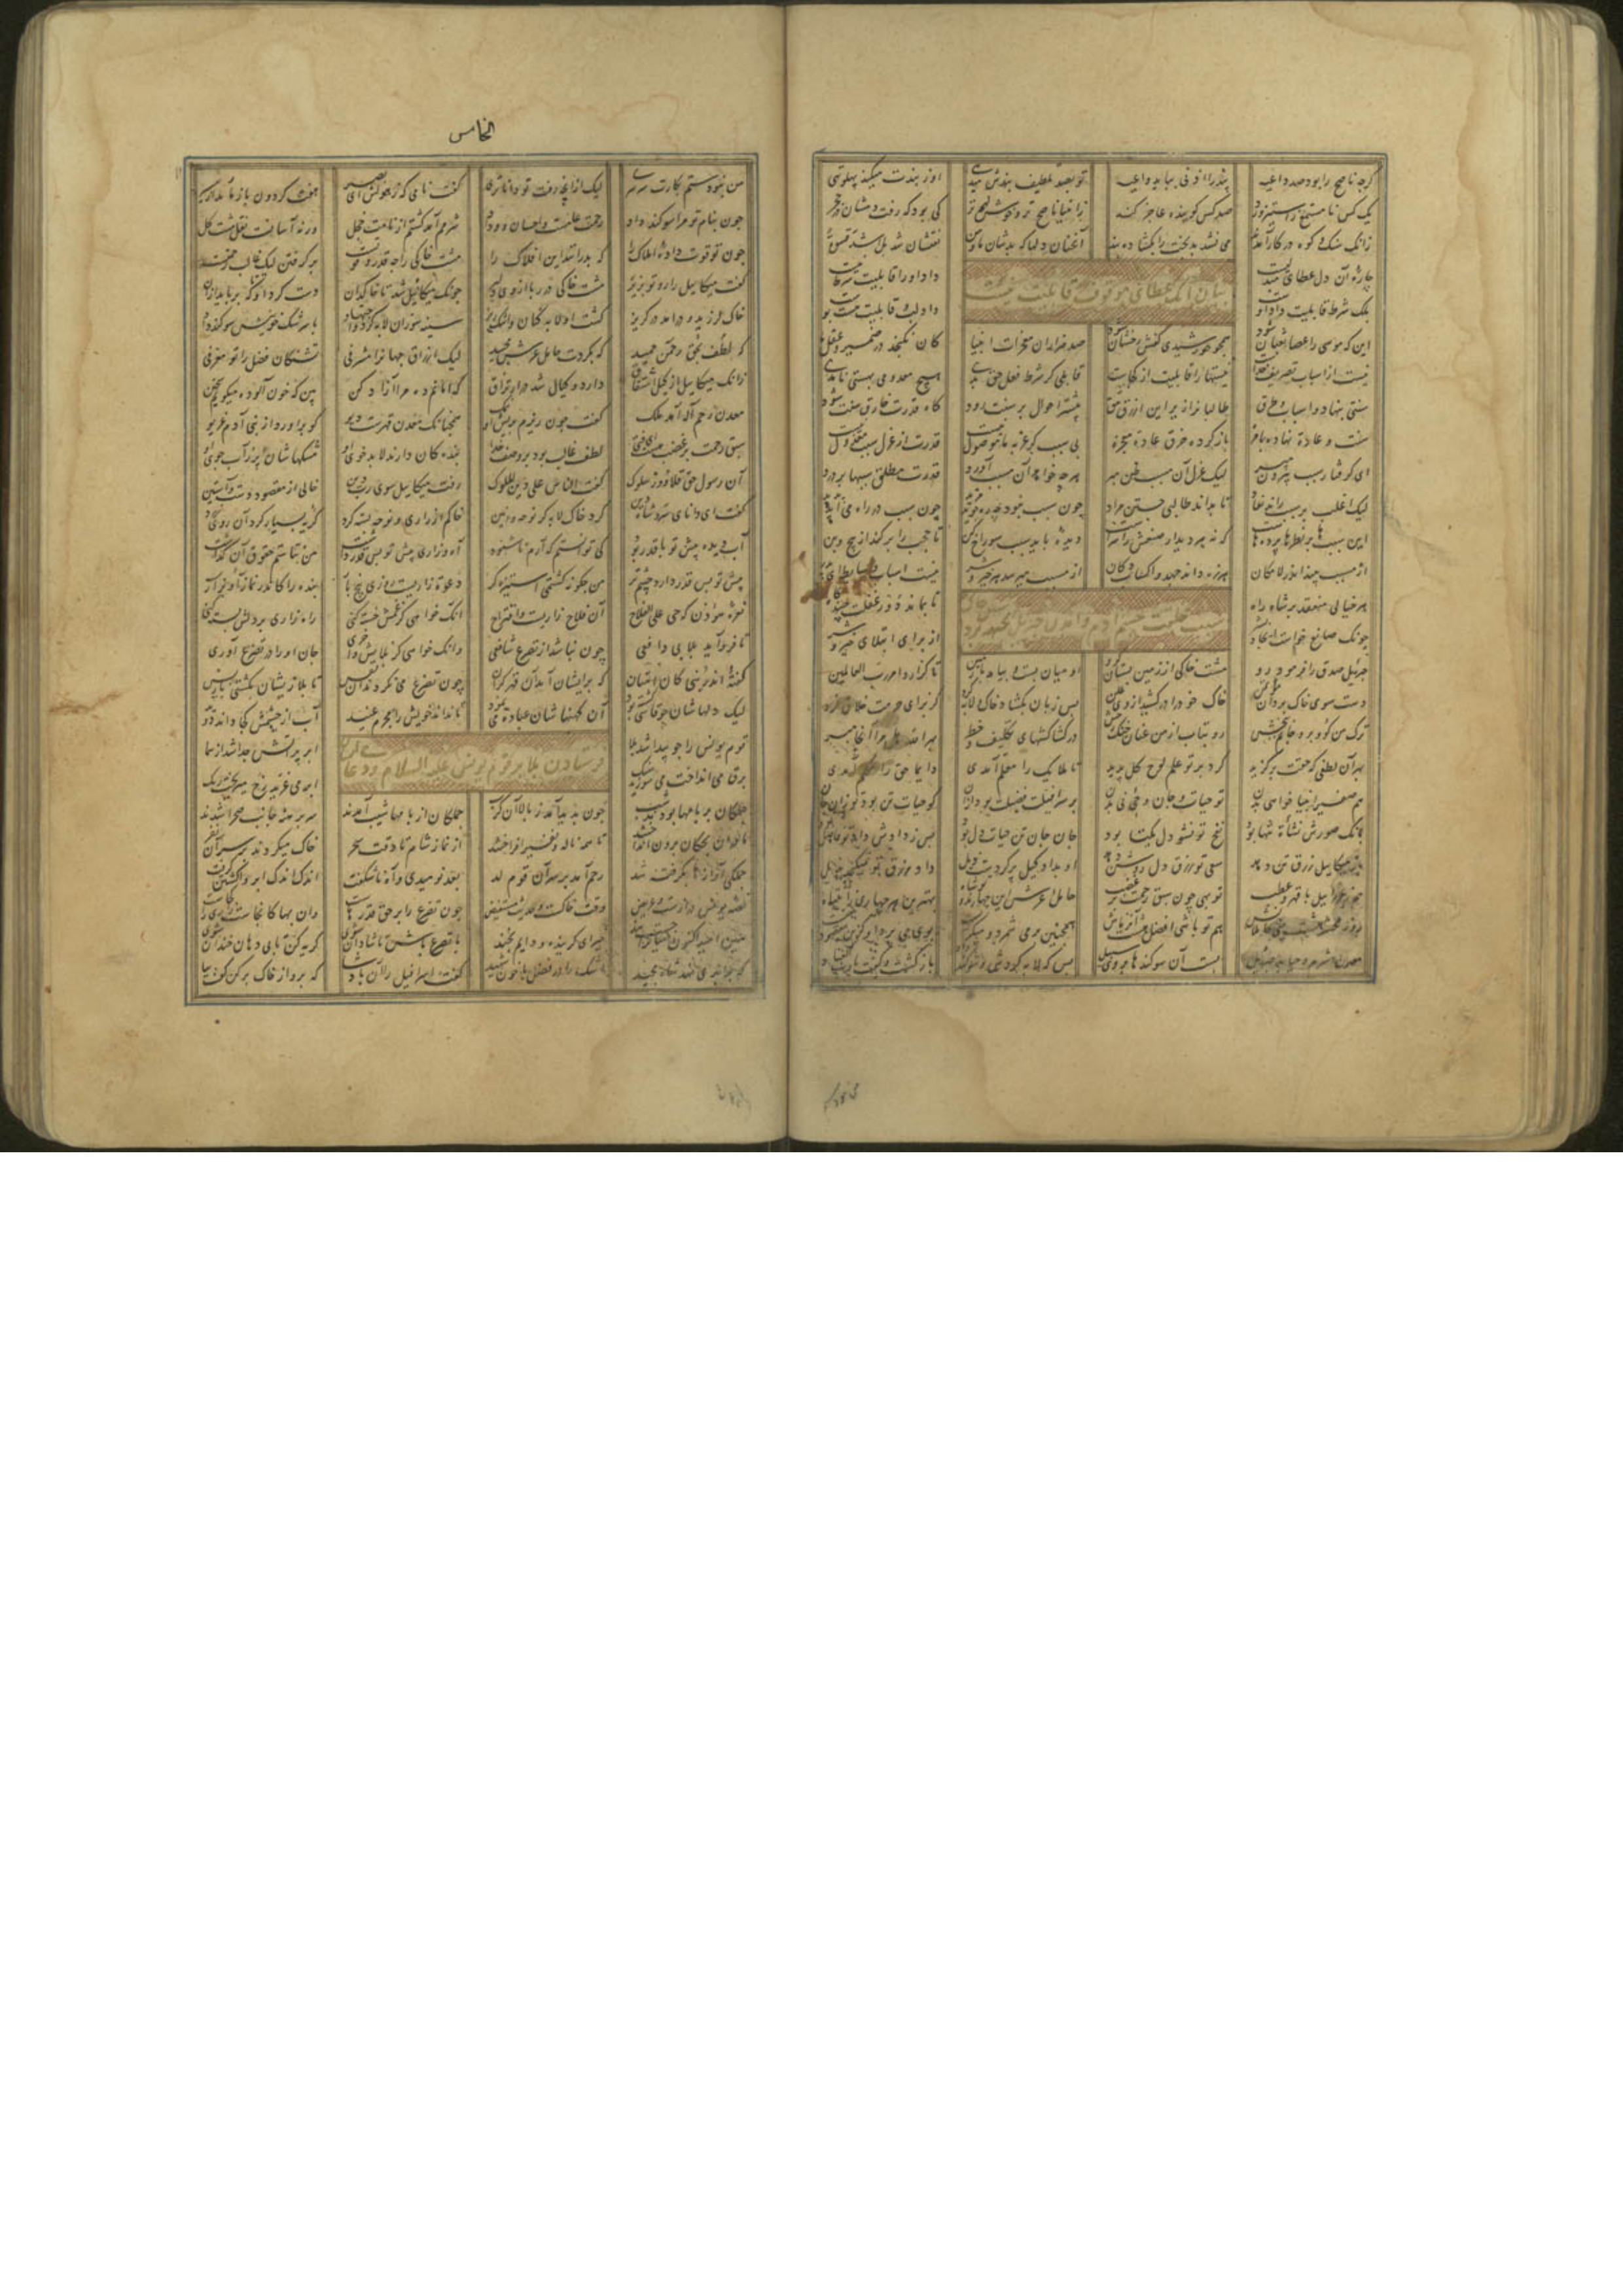 گرچه ناصح را بود صد داعیه پند را اذنی بباید واعیه تو بصد تلطیف پندش میدهی او ز پندت میکند پهلو تهی
یک کس نا مستمع ز استیز و رد صد کس گوینده را عاجز کند ز انبیا ناصح تر و خوش لهجه تر کی بود که رفت دمشان در حجر
زانک سنگ و کوه در کار آمدند می نشد بدبخت را بگشاده بند آنچنان دلها که بدشان ما و من نعتشان شد بل اشد قسوة
چاره آن دل عطای مبدلیست داد او را قابلیت شرط نیست
بیان آنک عطای موقوف قابلیت نیست
بلک شرط قابلیت داد اوست داد لب و قابلیت هست پوست
این که موسی را عصا ثعبان شود همچو خورشیدی کفش رخشان شود صد هزاران معجزات انبیا کان نگنجد در ضمیر و عقل ما
نیست از اسباب تصریف خداست نیستها را قابلیت از کجاست قابلی گر شرط فعل حق بدی هیچ معدومی بهستی نامدی
سنتی بنهاد و اسباب و طرق طالبان را زیر این ازرق تتق بیشتر احوال بر سنت رود گاه قدرت خارق سنت شود
سنت و عادة نهاده با مزه باز کرده خرق عادة معجزه بی سبب گر عز به ما موصول نیست قدرت از عزل سبب معزول نیست
ای گرفتار سبب بیرون مپر لیک عزل آن مسبب ظن مبر هرچه خواهد آن مسبب آورد قدرت مطلق سببها بر درد
لیک اغلب بر سبب راند نفاد تا بداند طالبی جستن مراد چون سبب نبود چه ره جوید مرید چون سبب در راه می آید پدید
این سببها بر نظرها پرده هاست که نه هر دیدار صنعش را سزاست دیده باید سبب سوراخ کن تا حجب را بر کند از بیخ و بن
از مسبب بیند اندر لامکان هرزه داند جهد و اکساب و دکان از مسبب میرسد هر خیر و شر نیست اسباب و وسایط ای پدر
هر خیالی منعقد بر شاه راه تا بماند دور غفلت چندگاه
سبب خلقت جسم آدم
چونک صانع خواست ایجاد بشر از برای ابتلای خیر و شر
جبرئیل صدق را فرمود رو مشت خاکی از زمین بستان گرو او میان بست و بیامد تا زمین تا گزارد امر رب العالمین
دست سوی خاک برد آن خاک خود را در کشید از وی پس زبان بگشاد خاک و لابه کرد کز برای حرمت خلاق فرد
ترک من گو و برو جانم ببخش رو بتاب از من عنان خنگ رخش در کشاکشهای تکلیف و خطر بهر الله هل مرا
بهر آن لطفی که حقت برگزید کرد بر تو علم لوح کل پدید تا ملایک را معلم آمدی دایما حق را آمدی
هم سفیر انبیا خواهی بدن تو حیات و جان و حی نی بدن بر سرافیلت فضیلت بود از آن کو حیات تن بود تو آن جان
بانگ صورش نشأة تنها بود نفخ تو نشو دل یکتا بود جان جان تن حیات دل بود پس ز دادش داد تو فاضل بود
باز میکاییل رزق تن دهد سعی تو رزق دل روشن دهد او بداد کیل پر کردست ذیل داد رزق تو نمیگنجد بکیل
هم ز عزراییل با قهر و عطب تو بهی چون سبق رحمت بر غضب حامل عرش این چهارند و تو شاه بهترین هر چهاری ز انتباه
روز محشر هشت بینی حاملانش هم تو باشی افضل هشت آن زمانش همچنین برمی شمرد و میگریست بوی می برد او کزین مقصود چیست
معدن شرم و حیا بد جبرئیل بست آن سوگندها بر وی سبیل بس که لابه کردش و سوگند داد بازگشت و گفت یا رب العباد
الخامس
من نبودستم بکارت سرسری لیک از آنچ رفت تو داناتری گفت نامی که ز هولش ای بصیر هفت گردون باز ماند از مسیر
چون بنام تو مرا سوگند داد رحمت علمت و احسان و وداد شرمم آمد گشتم از نامت خجل ورنه آسانست نقل مشت گل
چون تو قوت داده املاک را که بدرانند این افلاک را مشت خاکی را چه قدر و قوتست بر گرفتن لیک غالب رحمتست
گفت میکاییل را رو تو بزیر مشت خاکی در ربا از وی دلیر چونک میکاییل شد تا خاکدان دست کرد او تا که برباید از آن
خاک لرزید و درآمد در گریز گشت او لابه کنان و اشک ریز سینه سوزان لابه کرد و اجتهاد با سرشک خونینش سوگند داد
که بلطف رحمن حمید که بکردت حامل عرش مجید لیک ارزاق جهان را مشرفی تشنگان فضل را تو مغرفی
زانک میکاییل از کیل اشتقاق دارد و کیال شد در ارتزاق که امانم ده مرا آزاد کن بین که خون آلود میگویم سخن
معدن رحم اله آمد ملک گفت چون ریزم بر ریش او نمک همچنانک معدن قهرست دیو کو برآورد از بنی آدم غریو
سبق رحمت بر غضب هست ای فتی لطف غالب بود بر وصف خدا بندگان دارند لابد خوی او مشکهاشان پر ز آب جوی او
آن رسول حق قلاوز سلوک گفت الناس علی دین الملوک رفت میکاییل سوی رب دین خالی از مقصود دست و آستین
گفت ای دانای سر و شاه دین کرد خاک لابه گر نوحه و انین خاکم از زاری و نوحه بسته کرد گریه بسیار کرد آن روی زرد
آب دیده پیش تو با قدر بود کی توانستم که آرم ناشنود آه و زاری پیش تو بس قدر داشت من نتانستم حقوق آن گذاشت
پیش تو بس قدر دارد چشم تر من چگونه گشتمی استیزه گر دعوة زاریست روزی پنج بار بنده را کاندر نماز آ و بزار
نعره مؤذن که حی علی الفلاح آن فلاح زاریست و اقتراح آنک خواهی کز غمش خسته کنی راه زاری بر دلش بسته کنی
تا فرود آید بلا بی دافعی چون نباشد از تضرع شافعی وانک خواهی کز بلایش واخری جان او را در تضرع آوری
گفته اندر نبی کان امتان که بر ایشان آمد آن قهر گران چون تضرع می نکردند آن نفس تا بلا زیشان بگشتی باز پس
لیک دلهاشان چو قاسی گشته بود آن گنهاشان عبادة می نمود تا نداند خویش را مجرم عنید آب از چشمش کجا داند دوید
قوم یونس را چو پیدا شد بلا ابر پر آتش جدا شد از سما
فرستادن بلا بر قوم یونس علیه السلام و دعای
برق می انداخت می سوزید سنگ ابر می غرید رخ میریخت رنگ
جملگان بر بامها بودند شب چون پدید آمد ز بالا آن کرب جملگان از بامها شیب آمدند سر برهنه جانب صحرا شدند
مادران بچگان برون انداختند تا همه ناله و نفیر افراختند از نماز شام تا وقت سحر خاک میکردند بر سر آن نفر
جملگی آوازها بگرفته شد رحم آمد بر سر آن قوم لد بعد نومیدی و آه ناشکفت اندک اندک ابر وا گشتن گرفت
قصه یونس درازست و عریض وقت خاکست و حدیث مستفیض چون تضرع را بر حق قدرهاست وان بها کانجاست زاری را کجاست
هین امید اکنون میان را چست بند خیز ای گرینده و دایم بخند با تضرع باش تا شادان شوی گریه کن تا بی دهان خندان شوی
که برابر می نهد شاه مجید اشک را در فضل با خون شهید گفت اسرافیل را یزدان ما که برو از خاک پر کن کف بیا